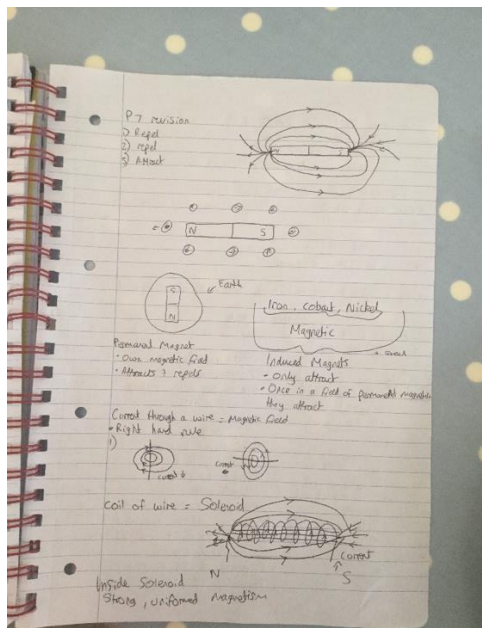 P7 revision
1) Repel
2) repel
3) Attract
N S
Earth
S
N
Iron, Cobalt, Nickel
Magnetic
Permanant Magnet
- Own magnetic field
- Attracts & repels
Induced Magnets
- Only attract
- Once in a field of permanant magnetic
they attract
Current through a wire = Magnetic Field
• Right hand rule
1)
current
current
Coil of wire = Solenoid
Current
N S
Inside Solenoid
Strong, uniformed magnetism